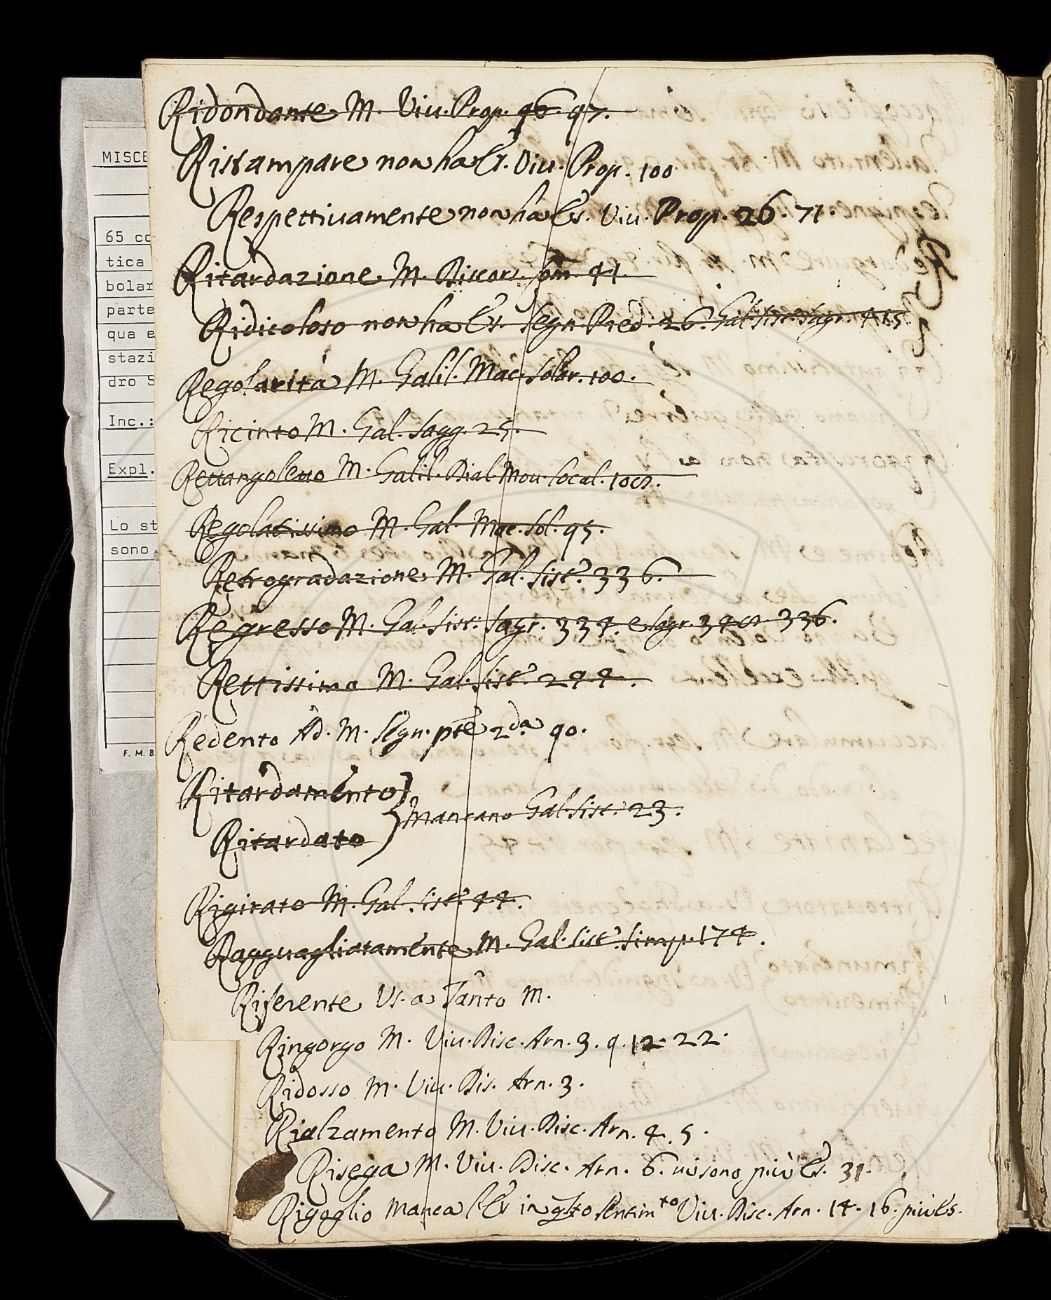 Ridondante M. Viu. Prop. 96. 97.
Ristampare non ha Es. Viu. Prop. 100
Respettiuamente non ha Es. Viu. Prop. 26 71.
Ritardazione M. Riccor. 41
Ridicoloso non ha Es. Segn. Pred. 26. Gal. Sist. Sagr. 415.
Regolarità M. Galil. Mac. Solar. 100.
Ricinto M. Gal. Sagg. 25.
Rettangoletto M. Galil. Dial. Mou. local.
Regolatissimo M. Gal. Mac. Sol. 95.
Retrogradazione M. Gal. Sist. 336.
Regresso M. Gal. Sist. Sagr. 334. e Sagr. 336.
Rettissimo M. Gal. Sist. 244.
Redento Ad. M. Segn. pte 2da 90.
Ritardamento
Mancano Gal. Sist. 23.
Ritardato
Rigirato M. Gal. Sist. 44.
Ragguagliatamente M. Gal. Sist. Simp. 174.
Riferente V. a Tanto M.
Ringorgo M. Viu. Disc. Arn. 3. 9. 12. 22.
Ridosso M. Viu. Dis. Arn. 3.
Rialzamento M. Viu. Disc. Arn. 4. 5.
Risega M. Viu. Disc. Arn. 6. ui sono più Es. 31.
Rigoglio Manca l'Es in qto sentimto Viu. Disc. Arn. 14. 16. più Es.
Re
MISCE
65 co
tica
bolar
parte
qua e
stazi
dro S
Inc.:
Expl.
Lo st
sono
F. M. B